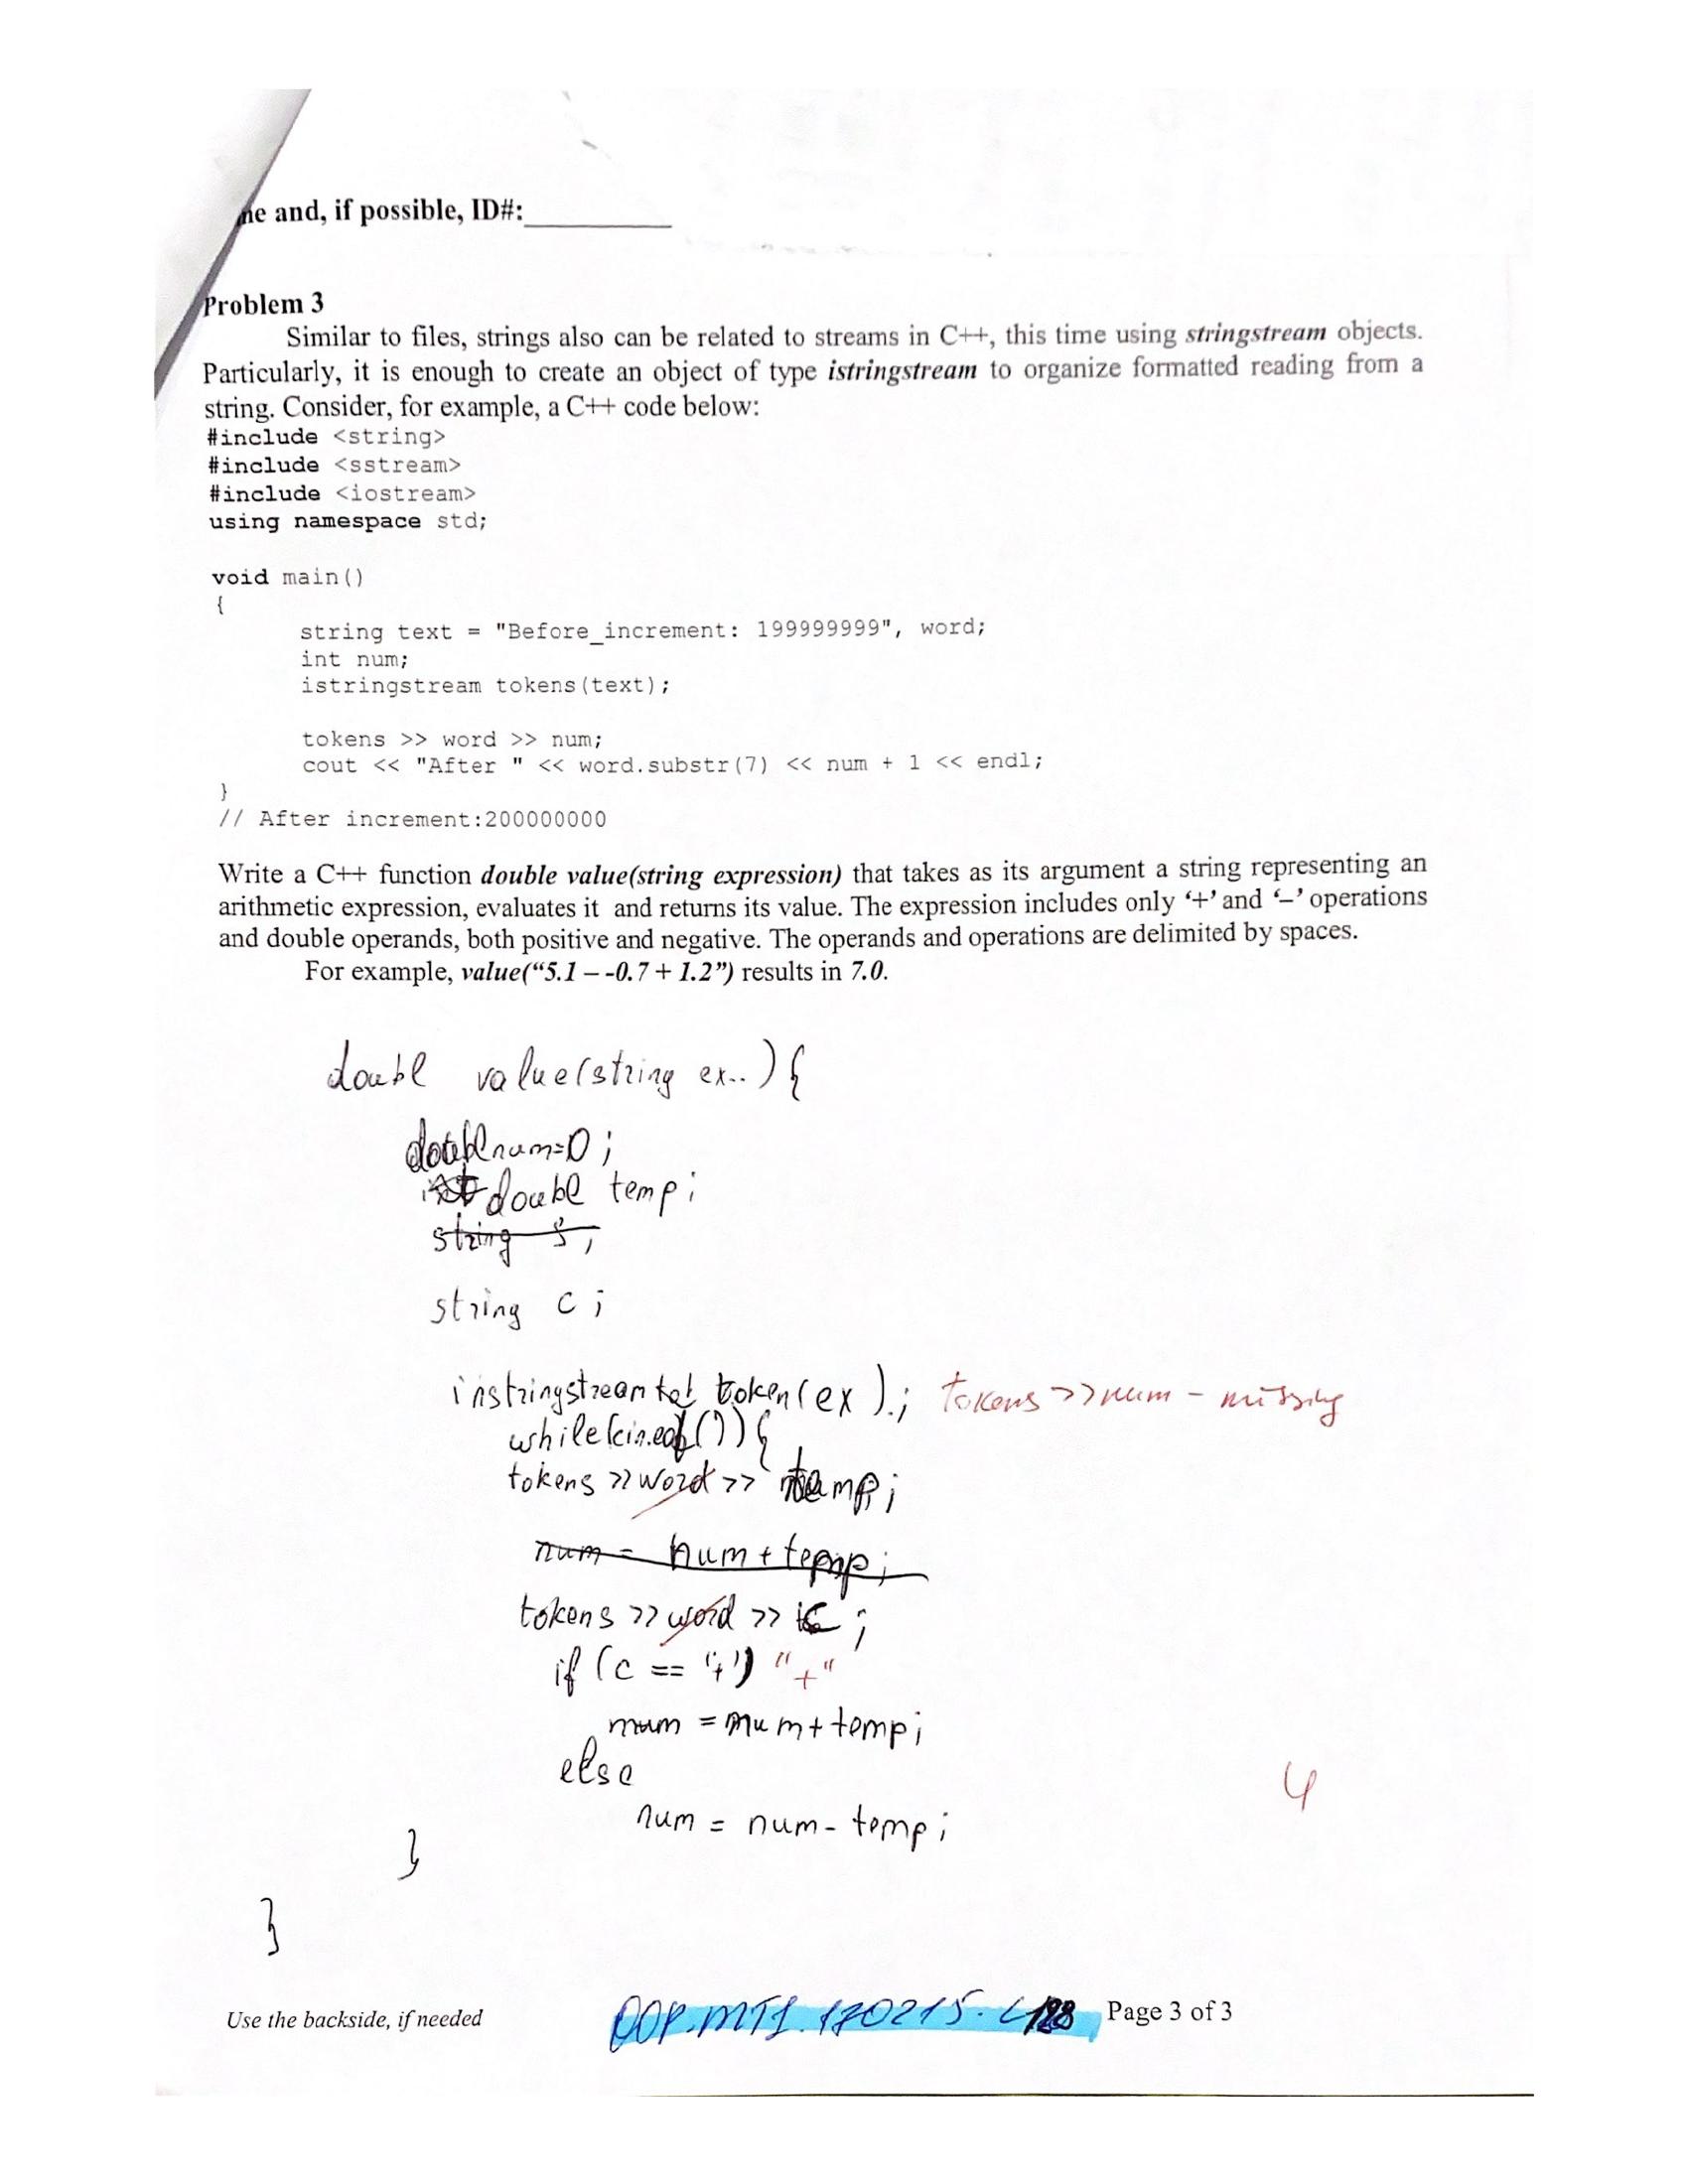 ne and, if possible, ID#:__________
Problem 3
Similar to files, strings also can be related to streams in C++, this time using stringstream objects.
Particularly, it is enough to create an object of type istringstream to organize formatted reading from a
string. Consider, for example, a C++ code below:
#include <string>
#include <sstream>
#include <iostream>
using namespace std;
void main()
{
string text = "Before_increment: 199999999", word;
int num;
istringstream tokens(text);
tokens >> word >> num;
cout << "After " << word.substr(7) << num + 1 << endl;
}
// After increment:200000000
Write a C++ function double value(string expression) that takes as its argument a string representing an
arithmetic expression, evaluates it and returns its value. The expression includes only ‘+’ and ‘–’ operations
and double operands, both positive and negative. The operands and operations are delimited by spaces.
For example, value(“5.1 – -0.7 + 1.2”) results in 7.0.
doubl value(string ex..){
doubl num=0;
double temp;
string s;
string c;
instringstream token(ex); tokens >> num - missing
while(cin.eof()){
tokens >> word >> temp;
num = num + temp;
tokens >> word >> c;
if (c == '+') "+"
num = num + temp;
else
num = num - temp;
4
}
}
Use the backside, if needed
OOP.MT1.170215. Page 3 of 3